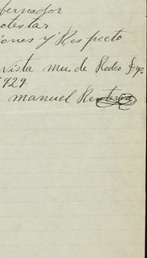 bernador
otestar
iones y Respecto
vista mu. de Rodeo
1929
manuel